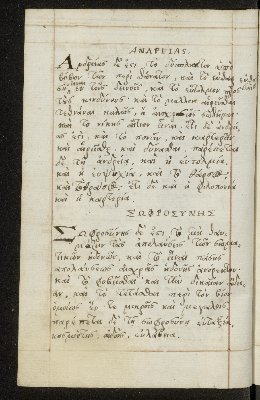 ΑΝΔΡΕΙΑΣ.
Ἀνδρείας δέ ἐστι τὸ δυσέκπληκτον
φόβων τῶν περὶ θάνατον, καὶ τὸ
ἐν τοῖς δεινοῖς, καὶ τὸ εὔτολμον πρὸς
τοὺς κινδύνους, καὶ τὸ μᾶλλον αἱρεῖσθαι
τεθνάναι καλῶς, ἢ αἰσχρῶς σωθῆναι,
καὶ τὸ νίκης αἴτιον εἶναι. ἔτι δὲ ἀνδρεί
ας ἐστι, καὶ τὸ πονεῖν, καὶ καρτερεῖν,
καὶ δύνασθαι, παρέπεται
δὲ τῇ ἀνδρείᾳ, καὶ ἡ εὐτολμία,
καὶ ἡ εὐψυχία, καὶ τὸ θάρσος,
καὶ τὸ θράσος, ἔτι δὲ καὶ ἡ φιλοπονία
καὶ ἡ καρτερία.
ΣΩΦΡΟΣΥΝΗΣ
Σωφροσύνης δέ ἐστι τὸ μὴ θαυ-
μάζειν τὰς ἀπολαύσεις τῶν σωμα-
τικῶν ἡδονῶν, καὶ τὸ εἶναι πάσης
ἀπολαυστικῆς αἰσχρᾶς ἡδονῆς ἀνόρεκτον,
καὶ τὸ φοβεῖσθαι καὶ τὴν δικαίαν ἀδοξί-
αν, καὶ τὸ τετάχθαι περὶ τὸν βίον
ὁμοίως ἔν τε μικροῖς καὶ μεγάλοις.
παρέπεται δὲ τῇ σωφροσύνῃ εὐταξία,
κοσμιότης, αἰδώς, εὐλάβεια.